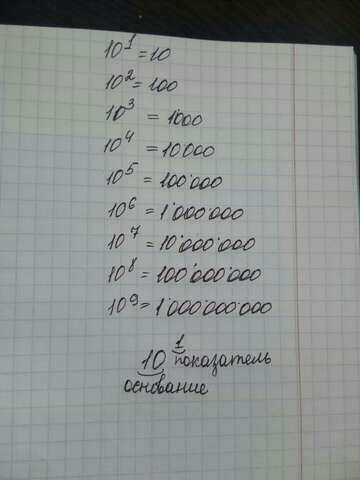 10¹ = 10
10² = 100
10³ = 1'000
10⁴ = 10'000
10⁵ = 100'000
10⁶ = 1'000'000
10⁷ = 10'000'000
10⁸ = 100'000'000
10⁹ = 1'000'000'000
10¹ показатель
основание